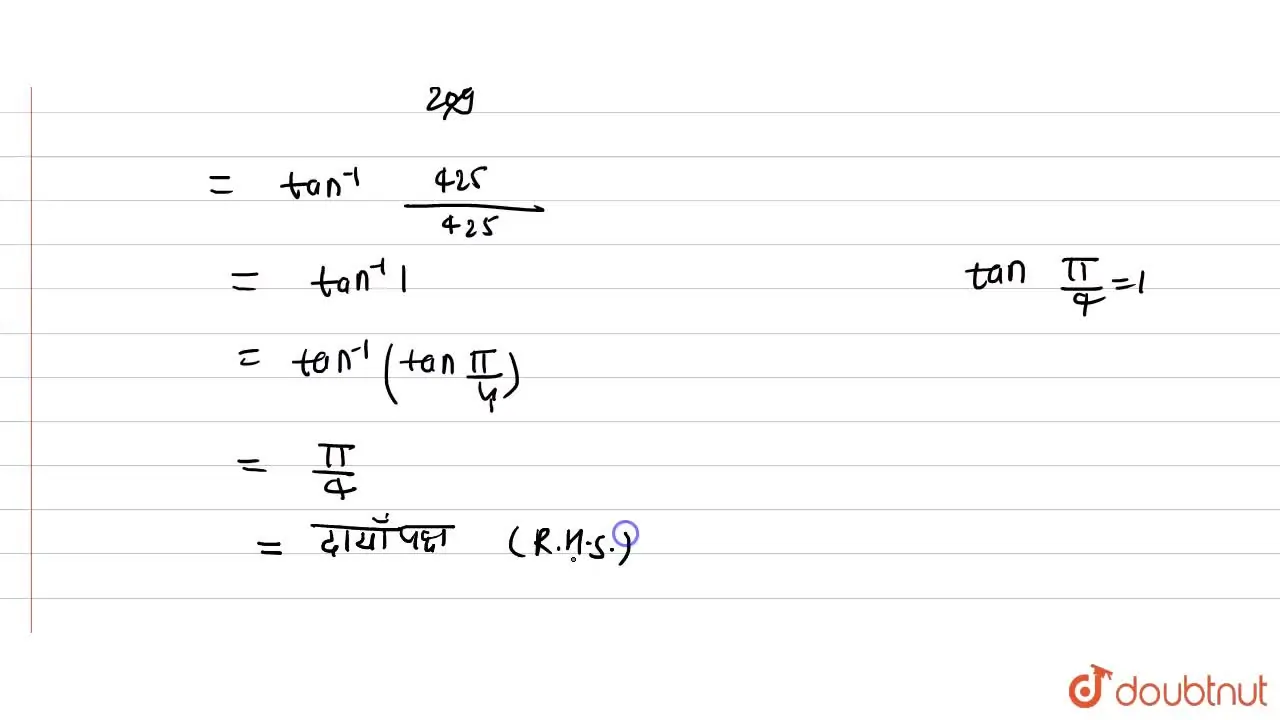 209
= tan⁻¹ 425
425
= tan⁻¹ 1
tan π/4 = 1
= tan⁻¹ (tan π/4)
= π/4
= दायाँ पक्ष (R.H.S.)
doubtnut